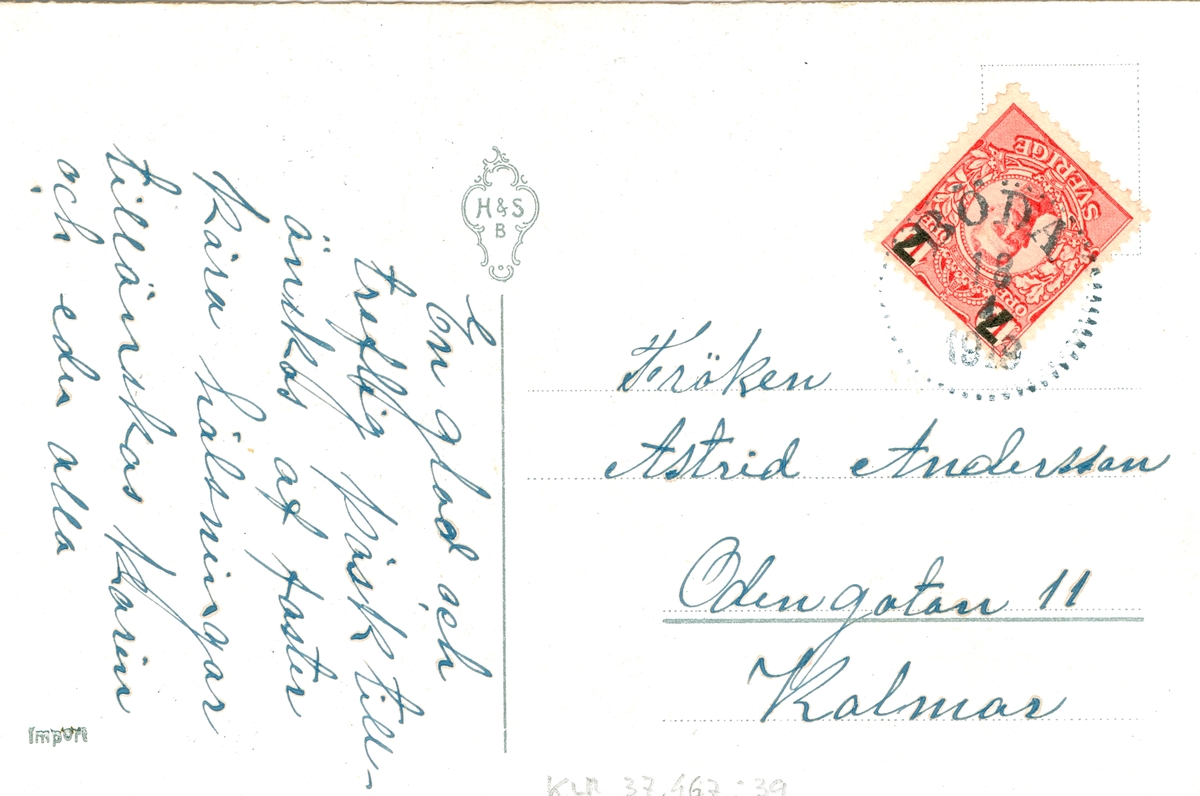 En glad och
treflig påsk till-
önskas af faster
Kära hälsningar
tillönskas Karin
och eder alla
Import
H & S
B
SVERIGE
7 7
BÖDA
18
Fröken
Astrid Andersson
Odengatan 11
Kalmar
KLM 37.467:39